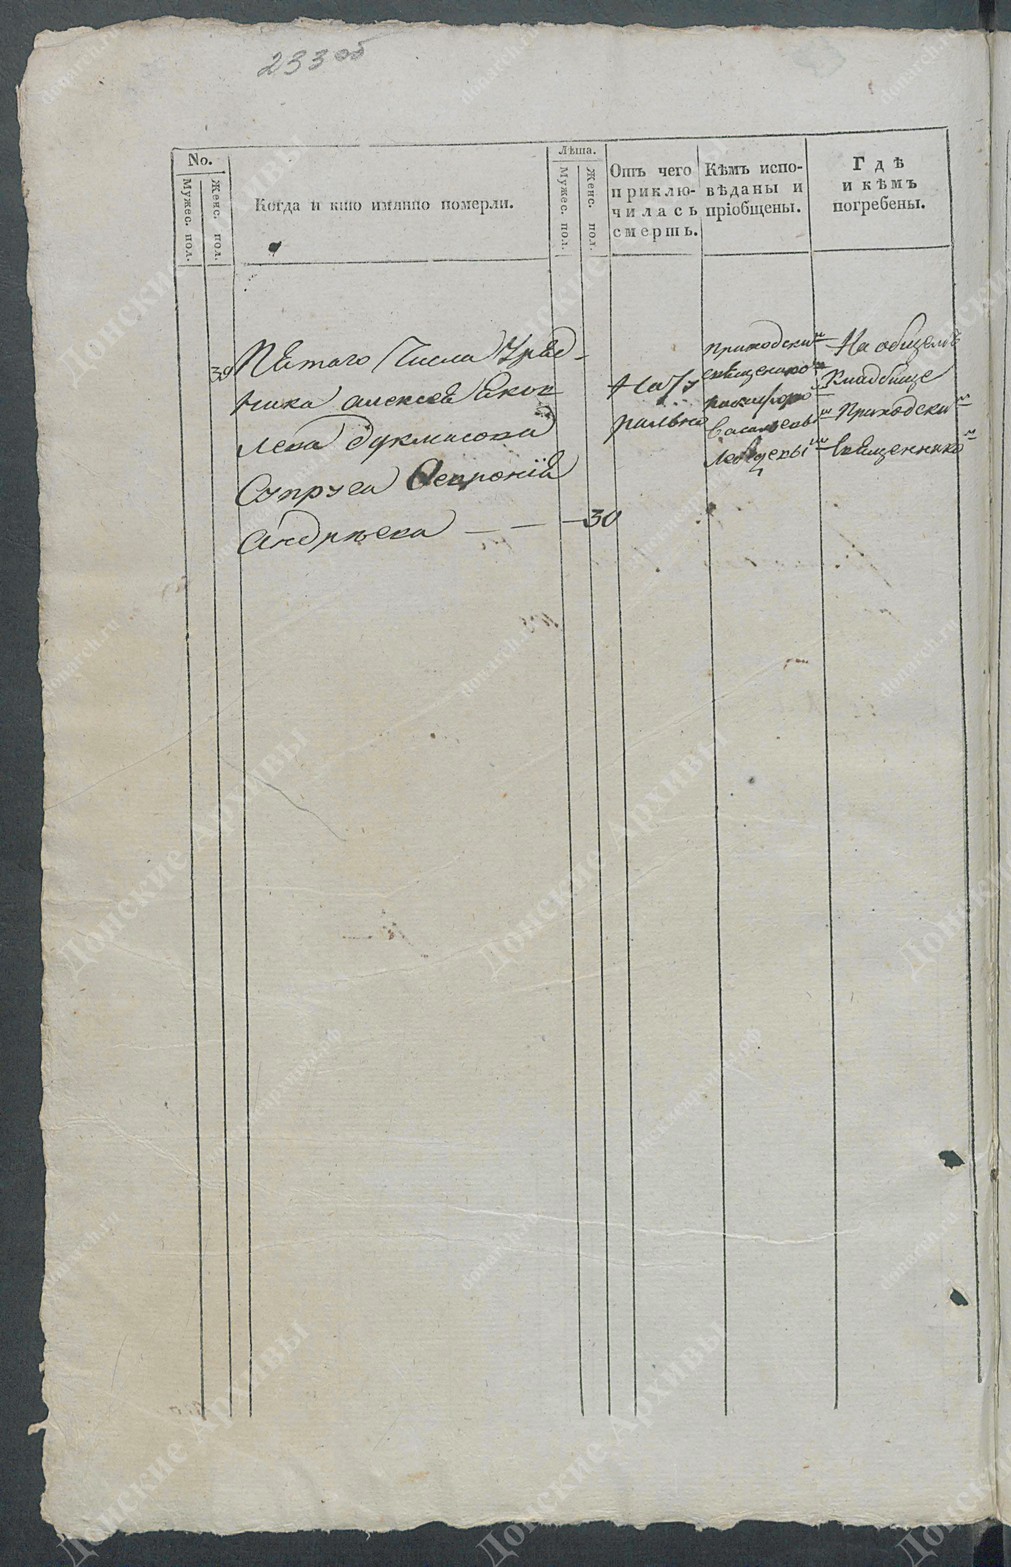 233 об
No.
Мужес. пол.
Женс. пол.
Когда и кто имянно померли.
Лѣта.
Мужес. пол.
Женс. пол.
Отъ чего
приклю-
чилась
смерть.
Кѣмъ испо-
вѣданы и
пріобщены.
Гдѣ
и кѣмъ
погребены.
Пятаго Числа Уряд-
ника алексея Яков
лева
Супруга Февронія
Андрѣева — — — 30
Нату
рально
приходским
священником
Васильевым
На общем
Кладбище
Приходским
священником
Донские Архивы
donarch.ru
донскиеархивы.рф